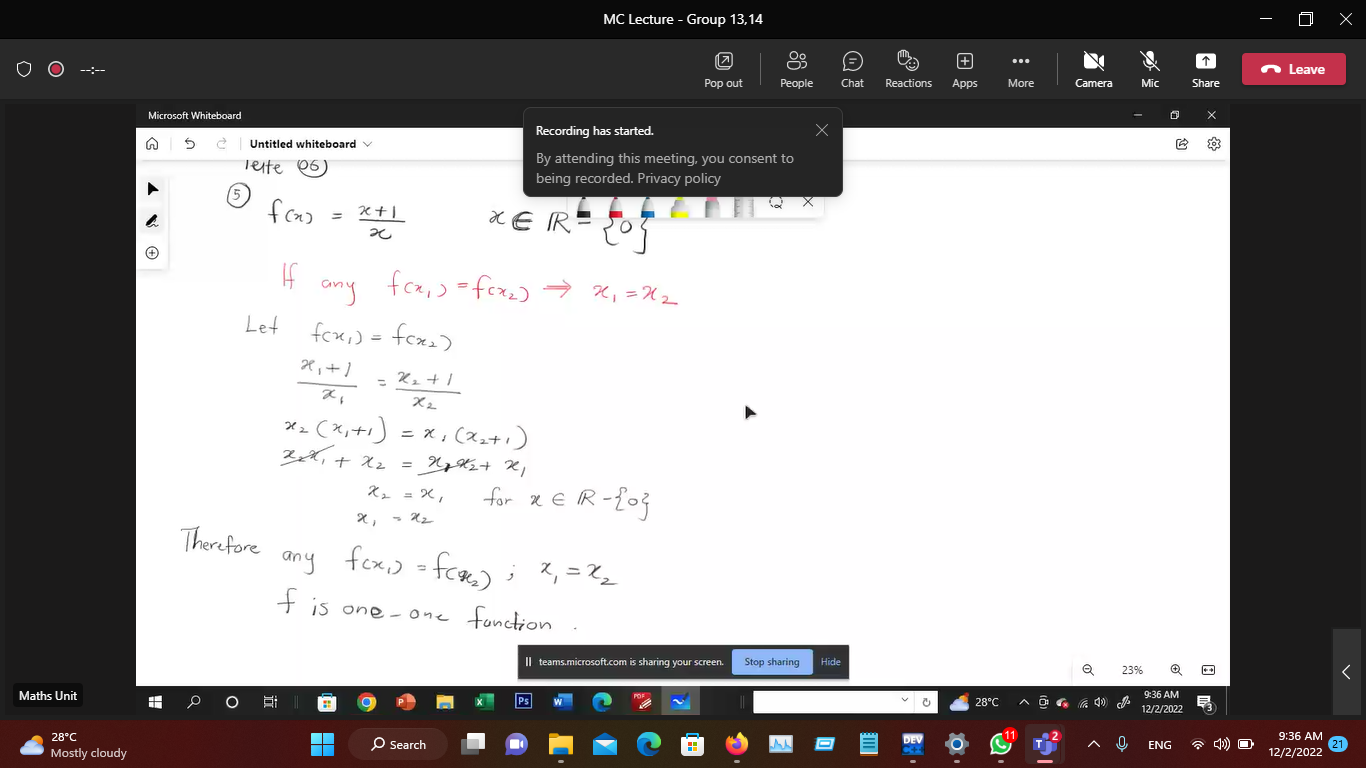 MC Lecture - Group 13,14
--:--
Pop out
People
Chat
Reactions
Apps
More
Camera
Mic
Share
Leave
Microsoft Whiteboard
Recording has started.
By attending this meeting, you consent to
being recorded. Privacy policy
Untitled whiteboard
06
5 f(x) = x+1/x x ∈ ℝ - {0}
If any f(x₁) = f(x₂) ⇒ x₁ = x₂
Let f(x₁) = f(x₂)
x₁+1/x₁ = x₂+1/x₂
x₂(x₁+1) = x₁(x₂+1)
x₂x₁ + x₂ = x₁x₂ + x₁
x₂ = x₁ for x ∈ ℝ - {0}
x₁ = x₂
Therefore any f(x₁) = f(x₂) ; x₁ = x₂
f is one-one function.
teams.microsoft.com is sharing your screen.
Stop sharing
Hide
23%
Maths Unit
28°C
9:36 AM
12/2/2022
3
28°C
Mostly cloudy
Search
DEV
11
2
ENG
9:36 AM
12/2/2022
21